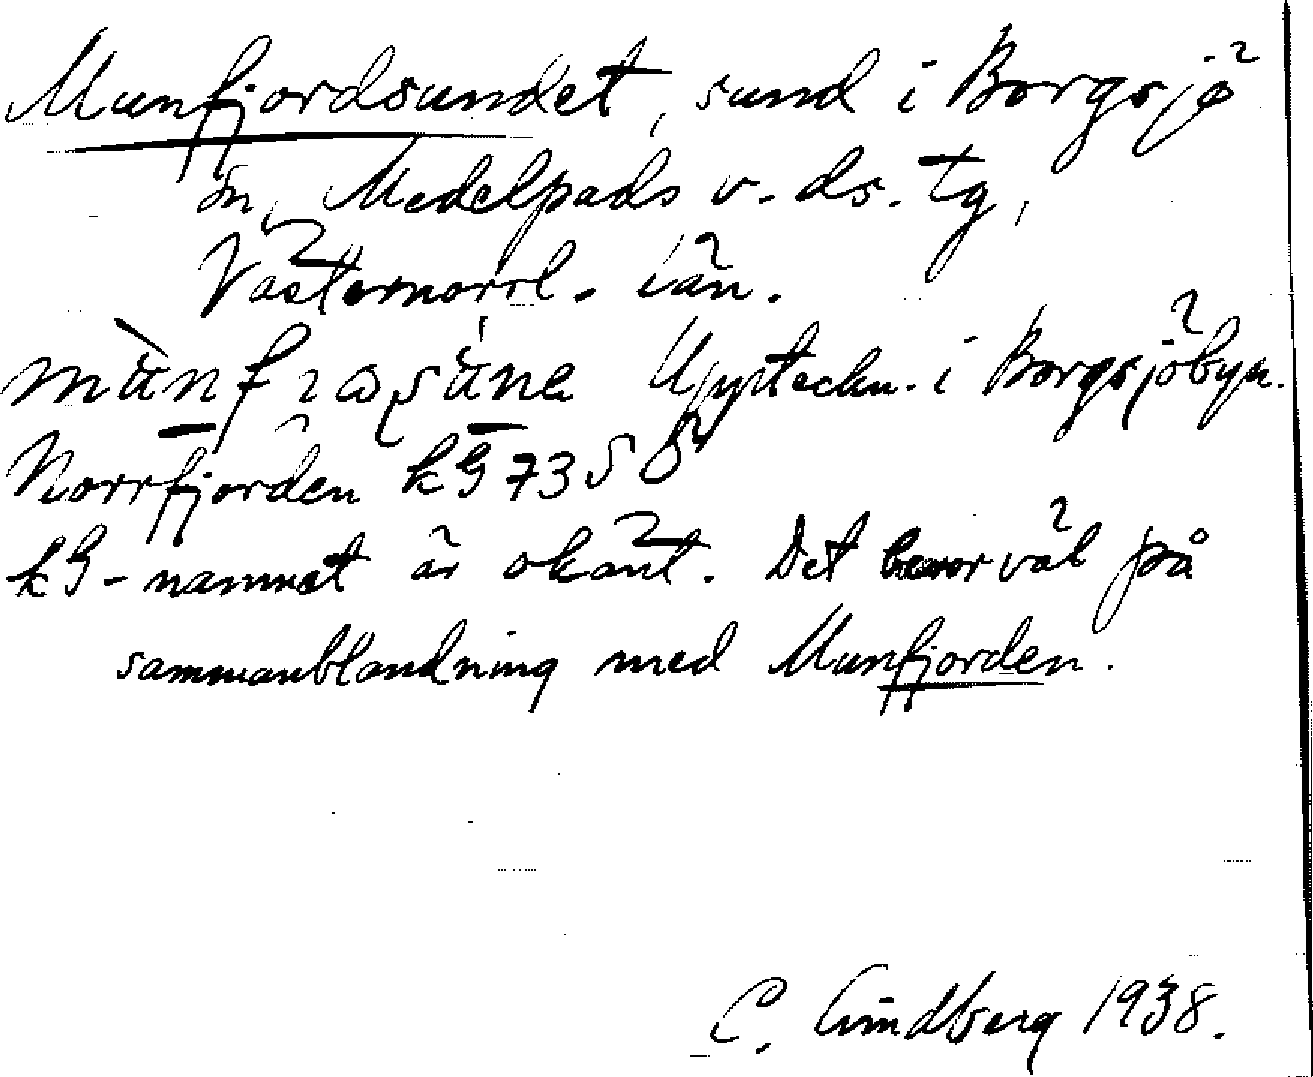 Munfjordsundet, sund i Borgsjö
sn, Medelpads v. ds. tg,
Västernorrl. län.
Uppteckn. i Borgsjöbyn.
Norrfjorden kG 73 S Ö
kG-namnet är okänt. Det beror väl på
sammanblandning med Munfjorden.
C. Lindberg 1938.